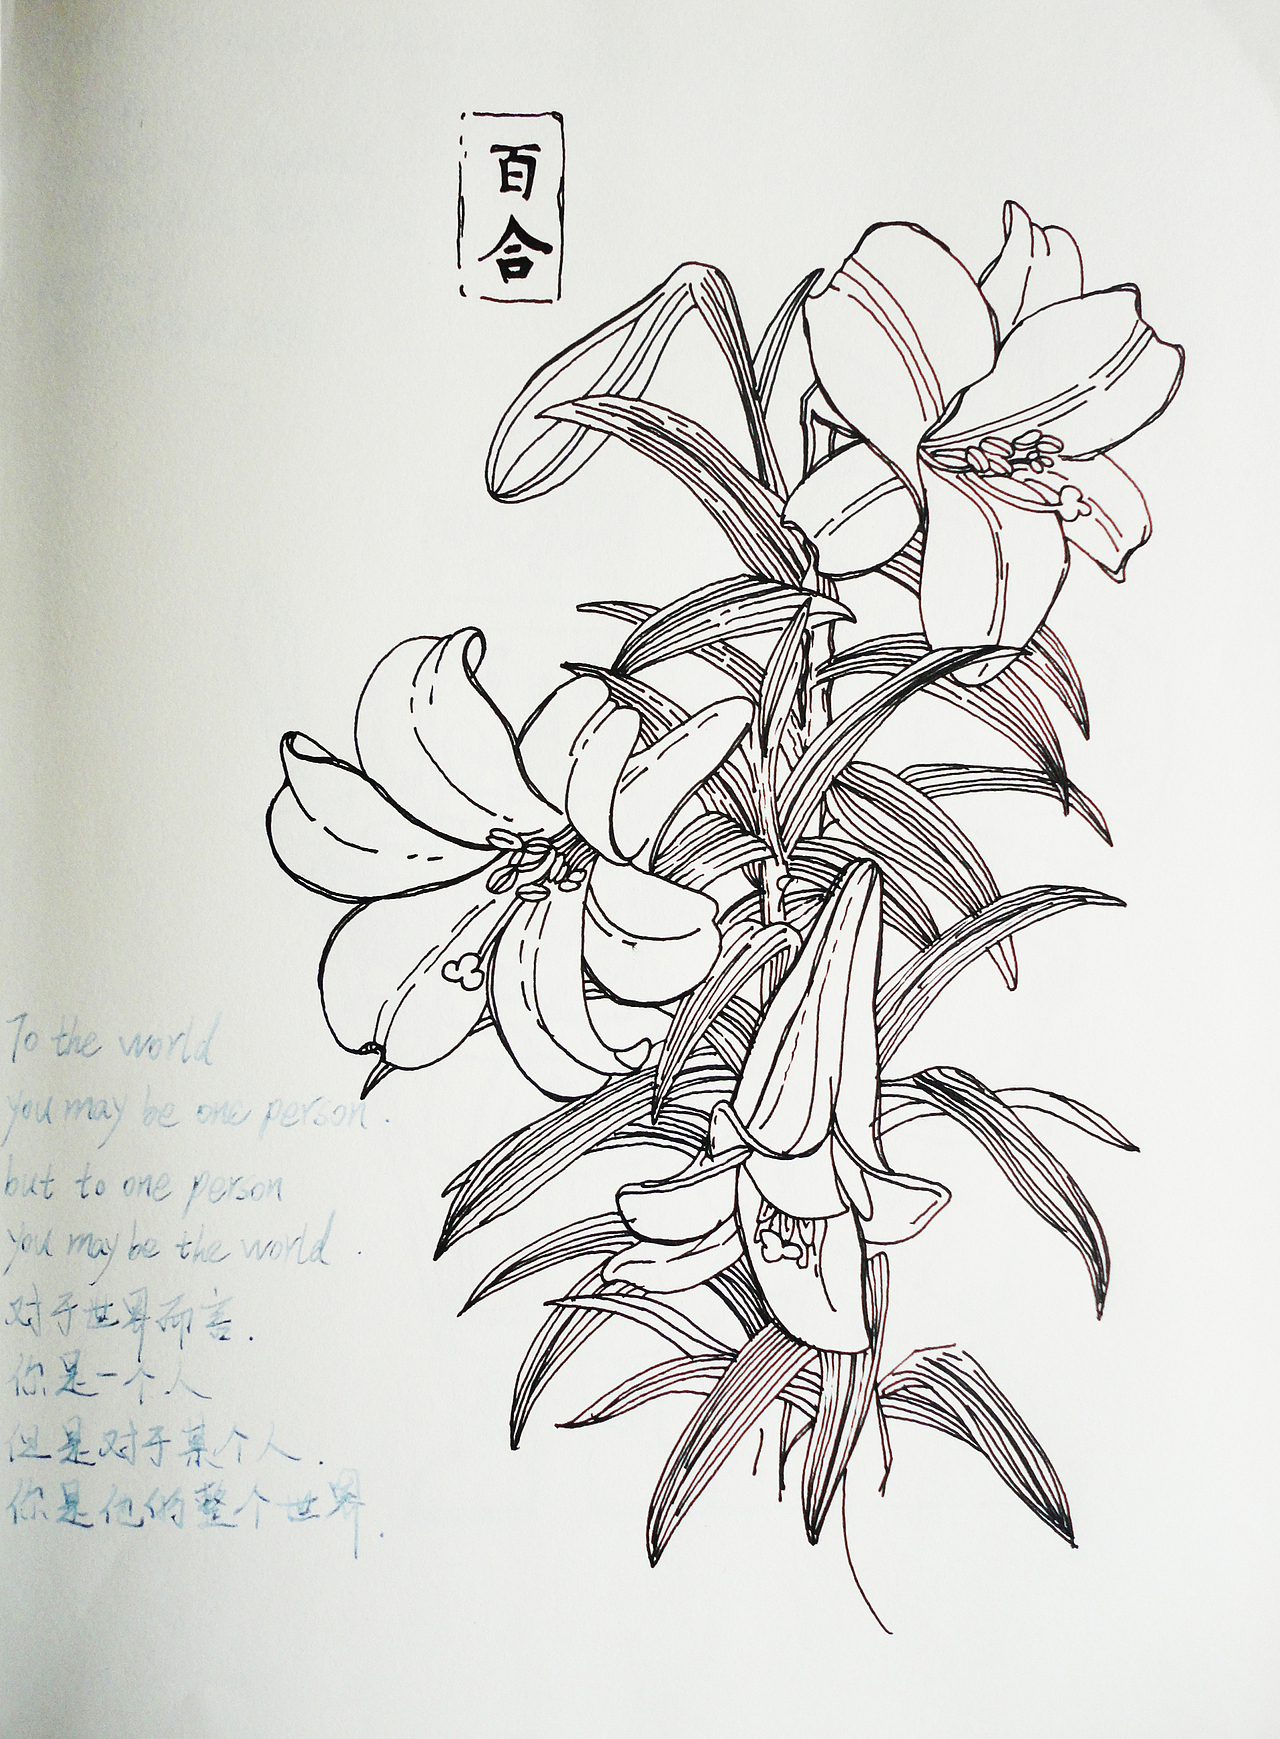 百合
To the world
you may be one person.
but to one person
you may be the world.
对于世界而言.
你是一个人
但是对于某个人.
你是他的整个世界.